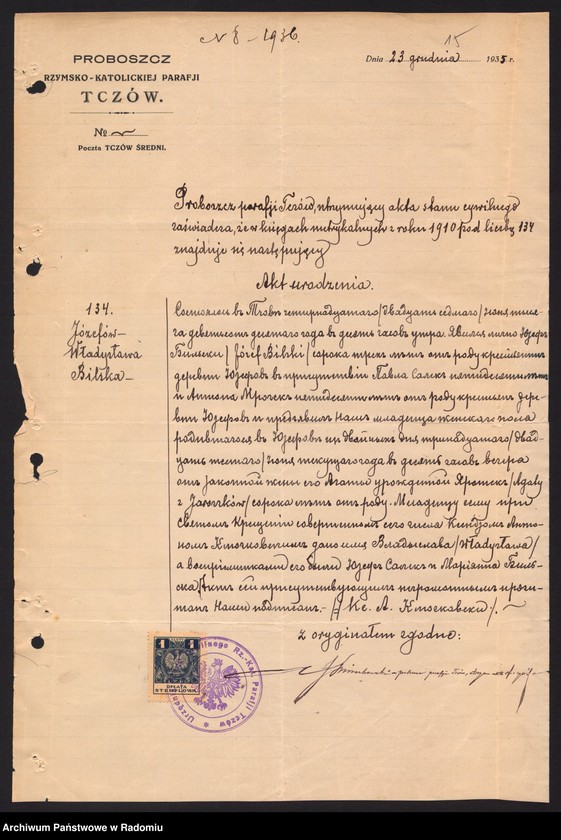 N 8 - 1936.
15
PROBOSZCZ
RZYMSKO-KATOLICKIEJ PARAFJI
TCZÓW.
№
Poczta TCZÓW ŚREDNI.
Dnia 23 grudnia 1935 r.
Proboszcz parafji Tczów, utrzymujący akta stanu cywilnego
zaświadcza, że w księgach metrykalnych z roku 1910 pod liczbą 134
znajduje się następujący
Akt urodzenia.
134.
Józefów-
Władysława
Bilska-
Состоялось въ Тчовѣ четырнадцатаго/двадцать седьмаго/ Іюня тыся-
ча девятьсотъ десятаго года въ десять часовъ утра. Явился лично Юзефъ
Бильски /Józef Bilski/ сорока трехъ лѣтъ отъ роду крестьянинъ
деревни Юзефовъ въ присутствіи Павла пятидесяти
и Антона Мрозекъ пятидесяти лѣтъ отъ роду крестьянъ дерев-
ни Юзефовъ и предъявилъ Намъ младенца женскаго пола
родившагося въ Юзефовѣ дня тринадцатаго/двад-
цать шестаго/ Іюня текущаго года въ десять часовъ вечера
отъ законной жены его Агаты урожденной /Agaty
z / сорока лѣтъ отъ роду. Младенцу сему при
Святомъ Крещеніи совершенномъ сего числа Ксендзомъ Анто-
номъ дано имя Владыслава /Władysława/
а воспріемниками его были Юзефъ и Маріанна Биль-
ска. Актъ сей присутствующимъ неграмотнымъ прочи-
танъ Нами подписанъ.- /-/ Кс. А.
Z oryginałem zgodno:
1 1
OPŁATA
STEMPLOWA
Rz.-Kat. Parafji Tczów * Urzędnik
Archiwum Państwowe w Radomiu